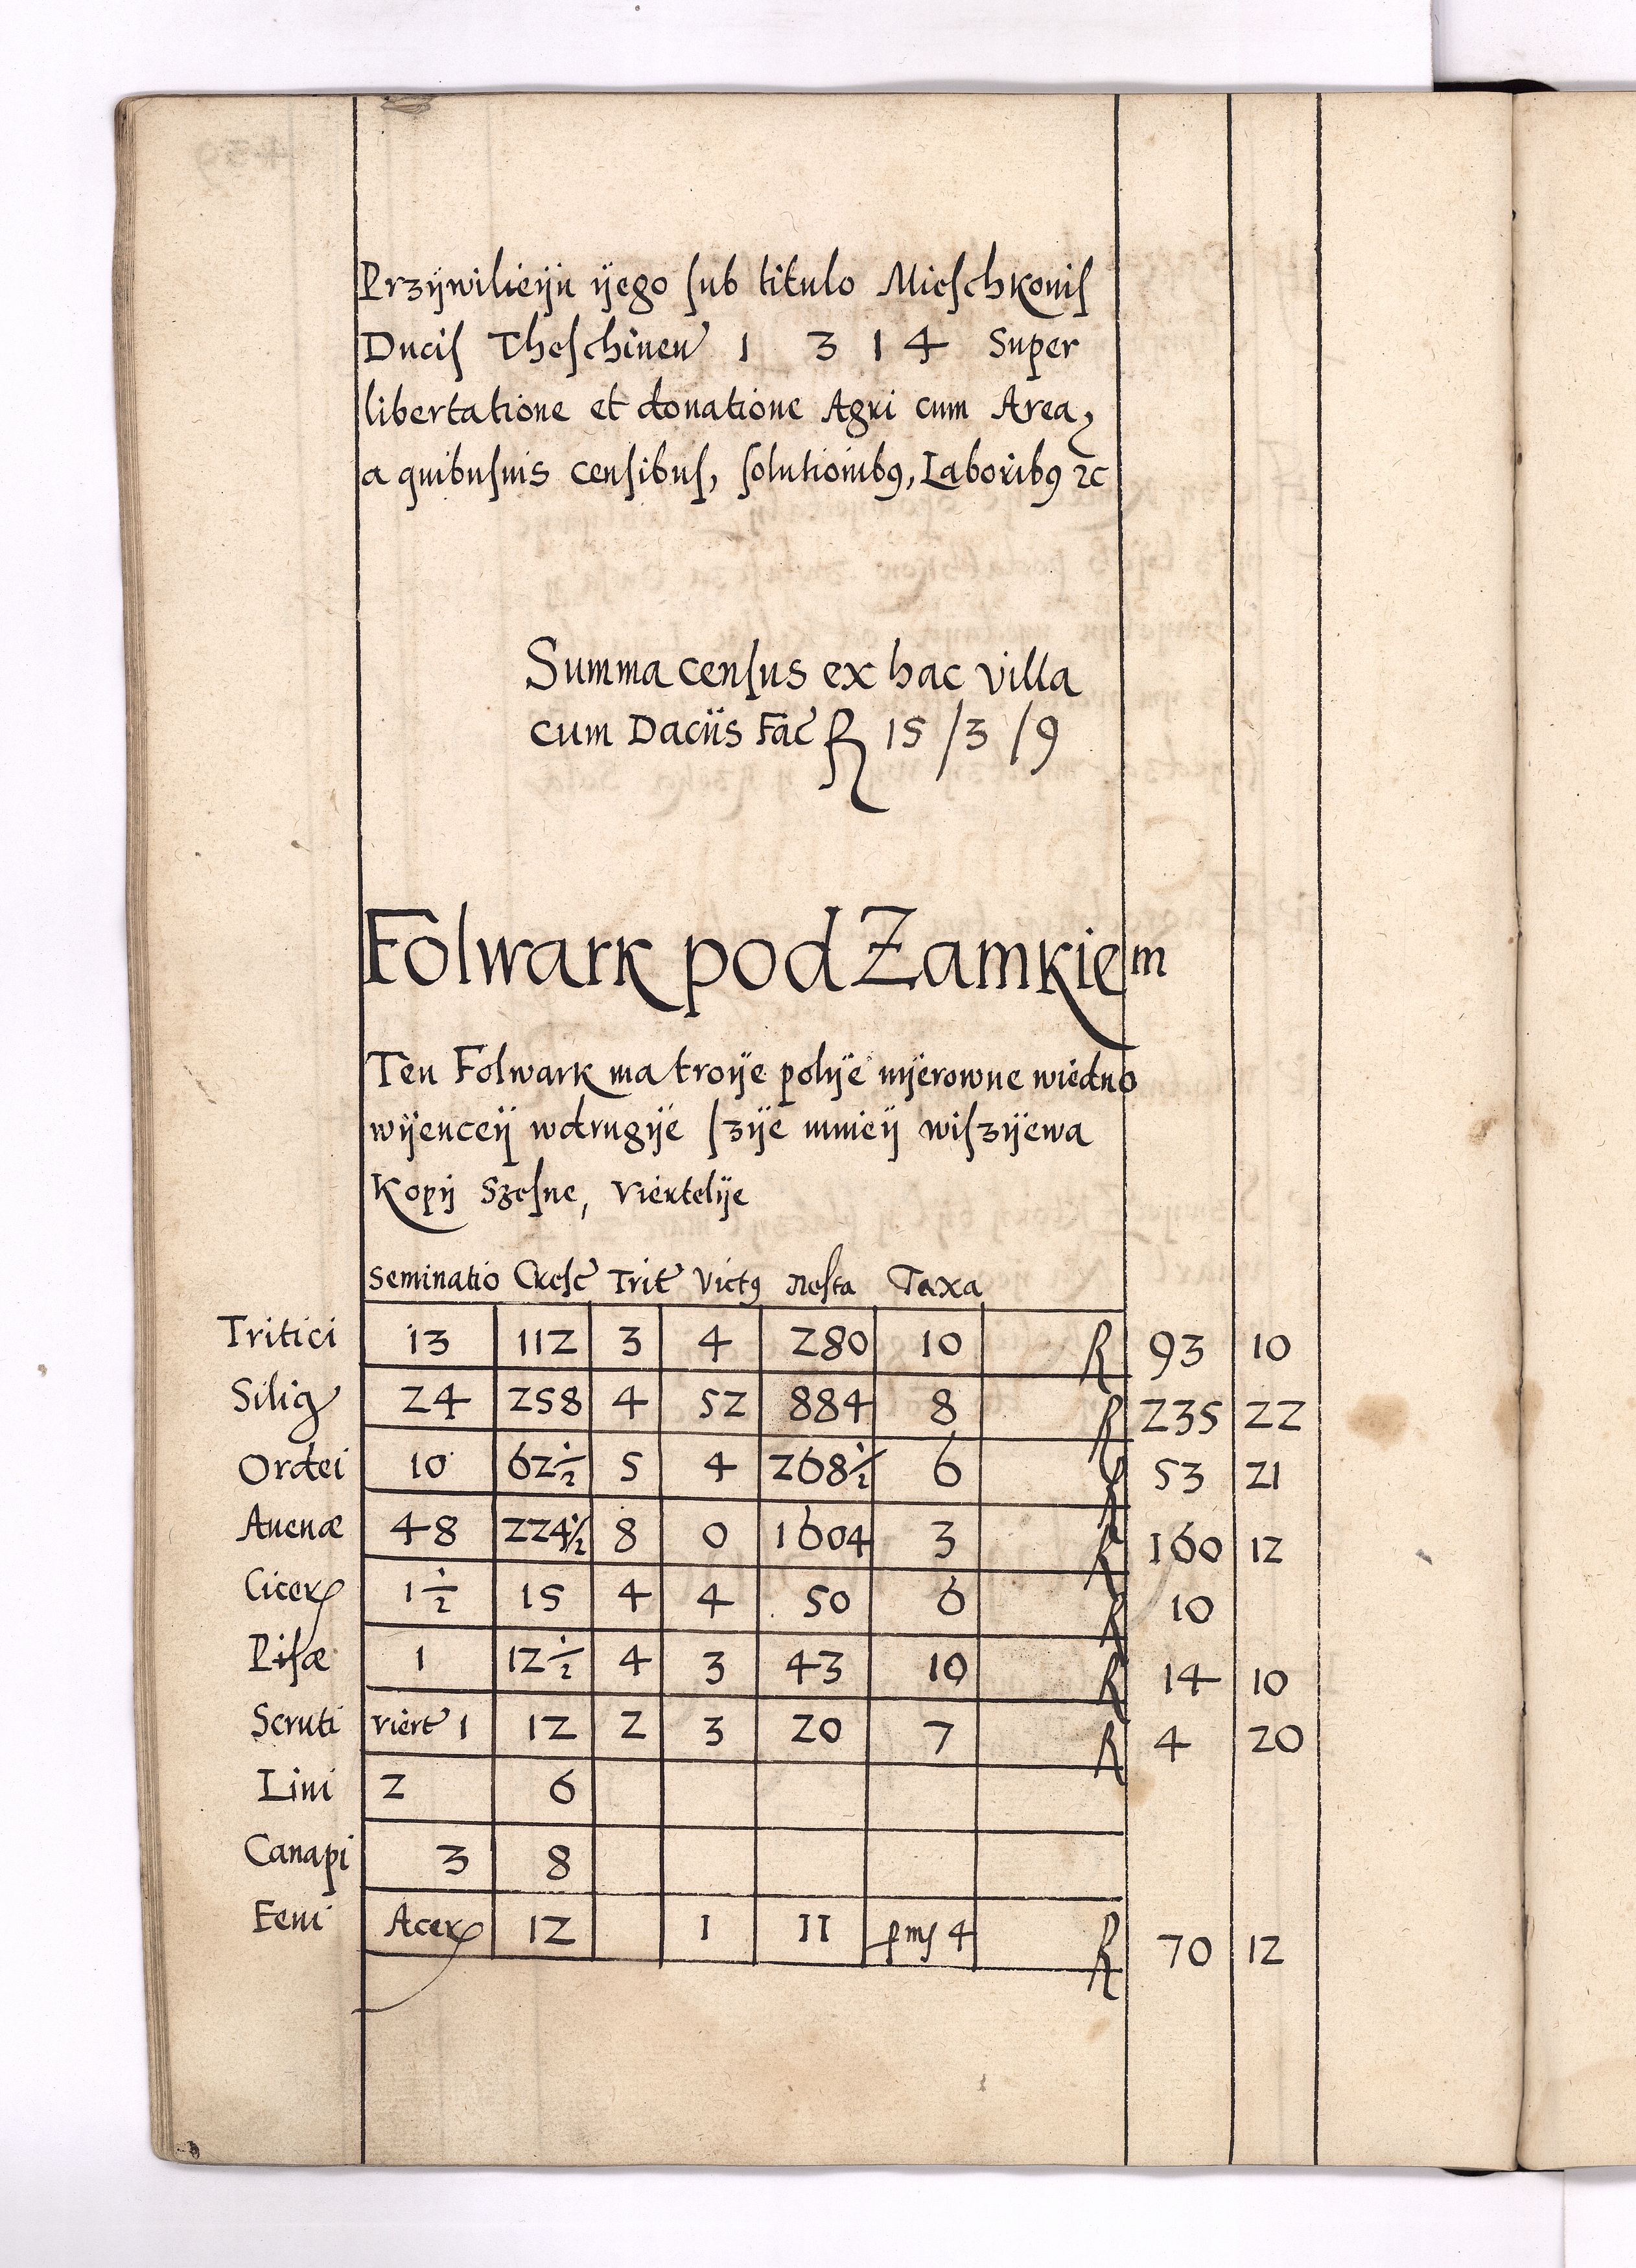 Przÿwilieÿu ÿego ſub titulo Mieſchkoniſ
Duciſ Theſchinen 1 3 1 4 Super
libertatione et donatione Agri cum Area,
a quibuſuis cenſibuſ, ſolutionibꝰ, Laboribꝰ ꝛc
Summa cenſus ex hac villa
cum Daciis Fac R 15 /3 /9
Folwark pod Zamkiem
Ten Folwark ma troÿe polÿe mÿerowne wiedno
wÿenceÿ wdrugÿe ſzÿe mnieÿ wiſzÿewa
Kopÿ Szeſne, viertelÿe
Seminatio Creſc Trit Victꝰ Reſta Taxa
Tritici 13 112 3 4 280 10 R 93 10
Silig 24 258 4 52 884 8 R 235 22
Ordei 10 62½ 5 4 268½ 6 R 53 21
Auenæ 48 224½ 8 0 1604 3 R 160 12
Cicerꝭ 1½ 15 4 4 50 6 R 10
Piſæ 1 12½ 4 3 43 10 R 14 10
Scruti viert 1 12 2 3 20 7 R 4 20
Lini 2 6
Canapi 3 8
Feni Acerꝭ 12 1 11 4 R 70 12